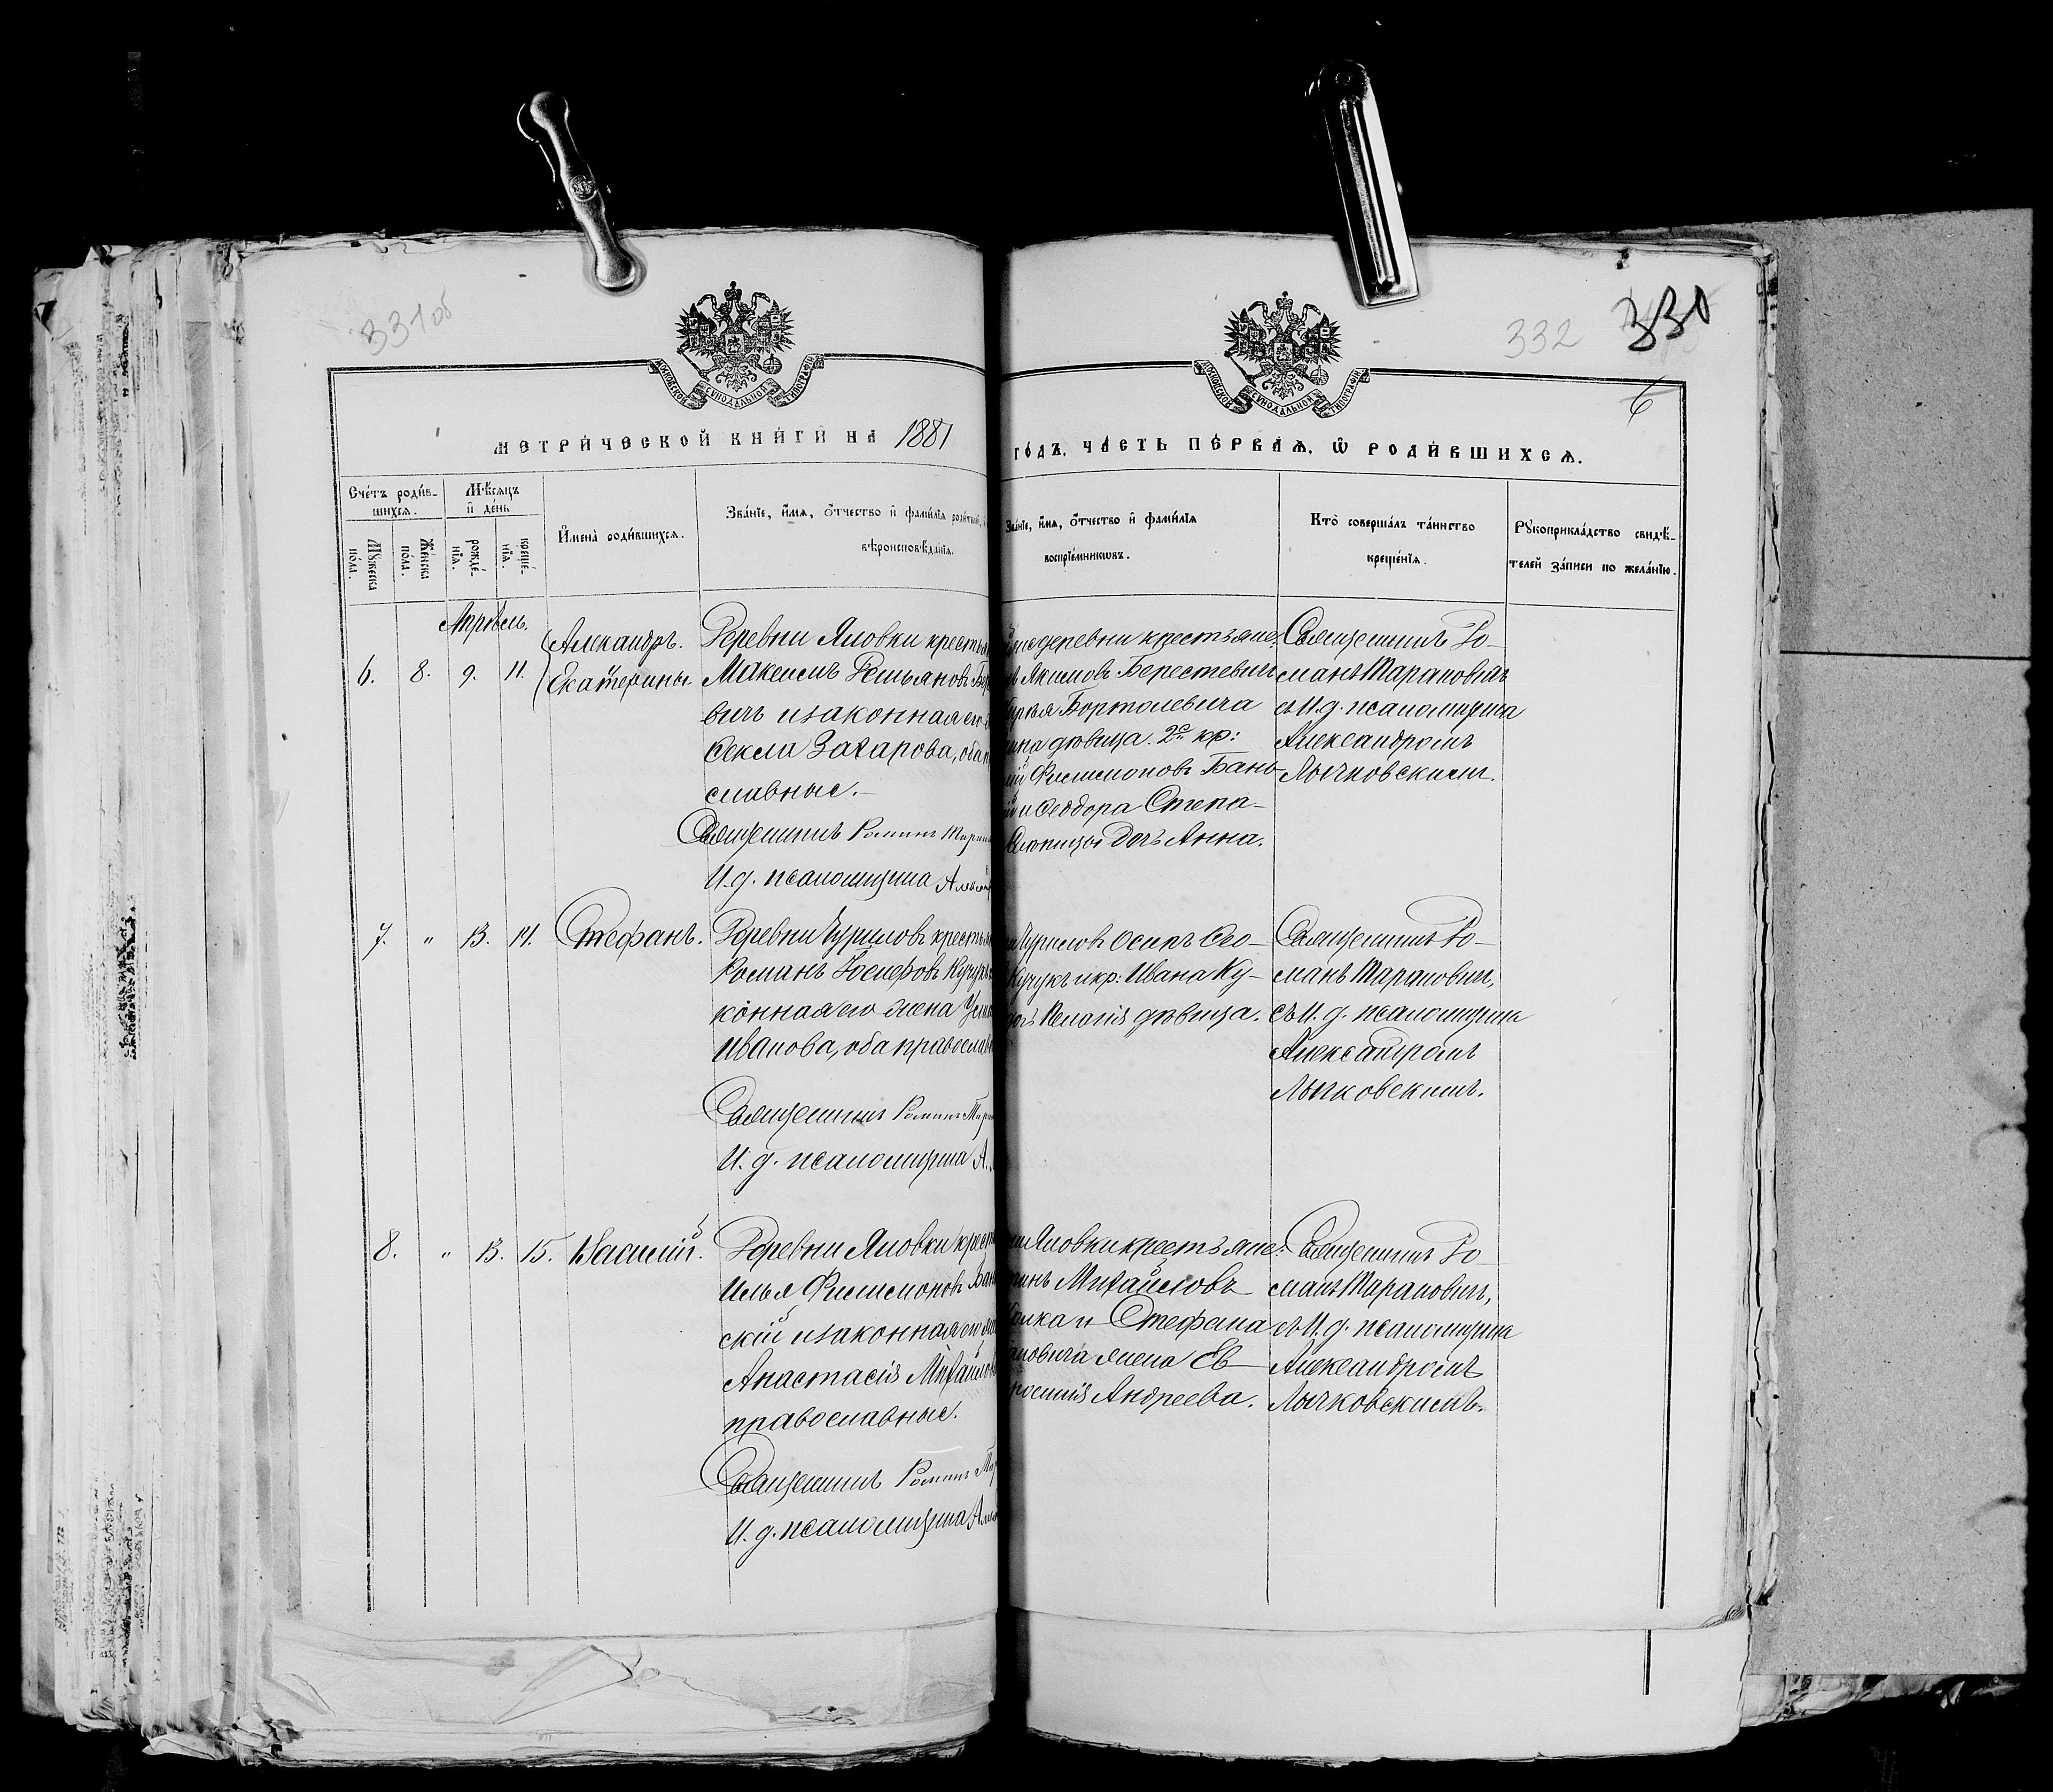 331об
332 330
6
МОСКОВСКОЙ СѴНОДАЛЬНОЙ ТИПОГРАФІИ
МОСКОВСКОЙ СѴНОДАЛЬНОЙ ТИПОГРАФІИ
МЕТРИ́ЧЕСКОЙ КНИ́ГИ НА 1881
ГО́ДЪ, ЧА́СТЬ ПЕ́РВАѦ, Ѡ РОДИ́ВШИХСѦ.
Сче́тъ роди́в-
шихсѧ.
Мѣ́сѧцъ
и҆ де́нь
Мꙋ́жеска
по́ла.
Же́нска
по́ла.
рожде́-
нїѧ.
креще́-
нїѧ.
И҆мена̀ роди́вшихсѧ.
Зва́нїе, и҆́мѧ, ѻ҆́тчество и҆ фами́лїѧ роди́телей,
вѣроисповѣ́данїѧ.
Зва́нїе, и҆́мѧ, ѻ҆́тчество и҆ фами́лїѧ
воспрїе́мникѡвъ.
Кто̀ соверша́лъ та́инство
креще́нїѧ.
Рꙋкоприкла́дство свидѣ́-
телей за́писи по жела́нїю.
Апрѣль.
6. 8. 9. 11.
Александръ.
Екатерины.
Деревни Яловки крестья
Максимъ Демьяновъ Бер
вичъ и законная его
Ѳекла Захарова, оба п
славные.
Священникъ Романъ Таран
И. д. псаломщика Алекса
деревни крестьяне:
Якимовъ Берестевичъ
Бортолевича
дѣвица. 2е кр:
Филимоновъ Бань-
и Ѳеодора Степа-
дочь Анна.
Священникъ Ро-
манъ Тарановичъ
съ И. д. псаломщика
Александромъ
Лычковскимъ.
7. " 13. 14. Стефанъ.
Деревни Чурилов крестья
Романъ Іосифовъ Кучукъ
конная его жена
Иванова, оба православ
Священникъ Романъ Таран
И. д. псаломщика А.
Чурилов Осипъ Осо-
Кучукъ и кр: Ивана Ку-
Пелагія дѣвица.
Священникъ Ро-
манъ Тарановичъ,
съ И. д. псаломщика
Александромъ
Лычковскимъ.
8. " 13. 15. Василій.
Деревни Яловки крест
Илья Филимоновъ Бань
скій и законная его же
Анастасія Михайлов
православные.
Священникъ Романъ Тар
И. д. псаломщика Алек
Яловки крестьяне:
Михайловъ
и Стефана
жена Ев-
Андреева.
Священникъ Ро-
манъ Тарановичъ,
съ И. д. псаломщика
Александромъ
Лычковскимъ.